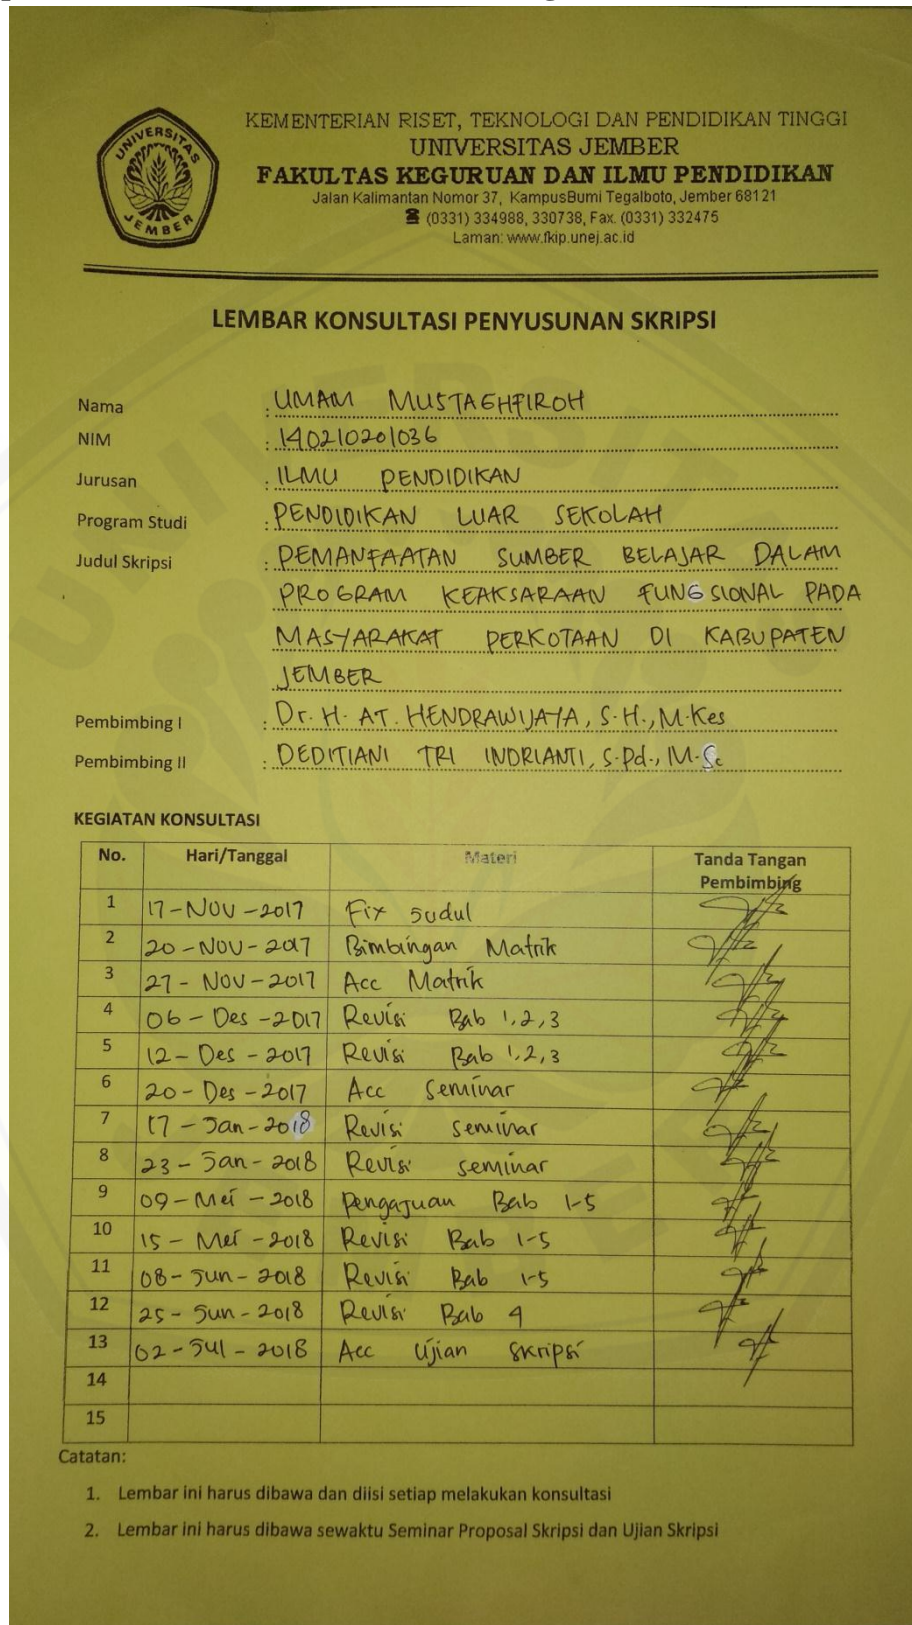 UNIVERSITAS
JEMBER
KEMENTERIAN RISET, TEKNOLOGI DAN PENDIDIKAN TINGGI
UNIVERSITAS JEMBER
FAKULTAS KEGURUAN DAN ILMU PENDIDIKAN
Jalan Kalimantan Nomor 37, KampusBumi Tegalboto, Jember 68121
☎ (0331) 334988, 330738, Fax. (0331) 332475
Laman: www.fkip.unej.ac.id
LEMBAR KONSULTASI PENYUSUNAN SKRIPSI
Nama : UMAM MUSTAGHFIROH
NIM : 140210201036
Jurusan : ILMU PENDIDIKAN
Program Studi : PENDIDIKAN LUAR SEKOLAH
Judul Skripsi : PEMANFAATAN SUMBER BELAJAR DALAM
PROGRAM KEAKSARAAN FUNGSIONAL PADA
MASYARAKAT PERKOTAAN DI KABUPATEN
JEMBER
Pembimbing I : Dr. H. AT. HENDRAWIJAYA, S.H., M.Kes
Pembimbing II : DEDITIANI TRI INDRIANTI, S.Pd., M.Sc
KEGIATAN KONSULTASI
No. Hari/Tanggal Materi Tanda Tangan
Pembimbing
1 17-NOV-2017 Fix Judul
2 20-NOV-2017 Bimbingan Matrik
3 27-NOV-2017 Acc Matrik
4 06-Des-2017 Revisi Bab 1,2,3
5 12-Des-2017 Revisi Bab 1,2,3
6 20-Des-2017 Acc Seminar
7 17-Jan-2018 Revisi seminar
8 23-Jan-2018 Revisi seminar
9 09-Mei-2018 Pengajuan Bab 1-5
10 15-Mei-2018 Revisi Bab 1-5
11 08-Jun-2018 Revisi Bab 1-5
12 25-Jun-2018 Revisi Bab 4
13 02-Jul-2018 Acc Ujian Skripsi
14
15
Catatan:
1. Lembar ini harus dibawa dan diisi setiap melakukan konsultasi
2. Lembar ini harus dibawa sewaktu Seminar Proposal Skripsi dan Ujian Skripsi